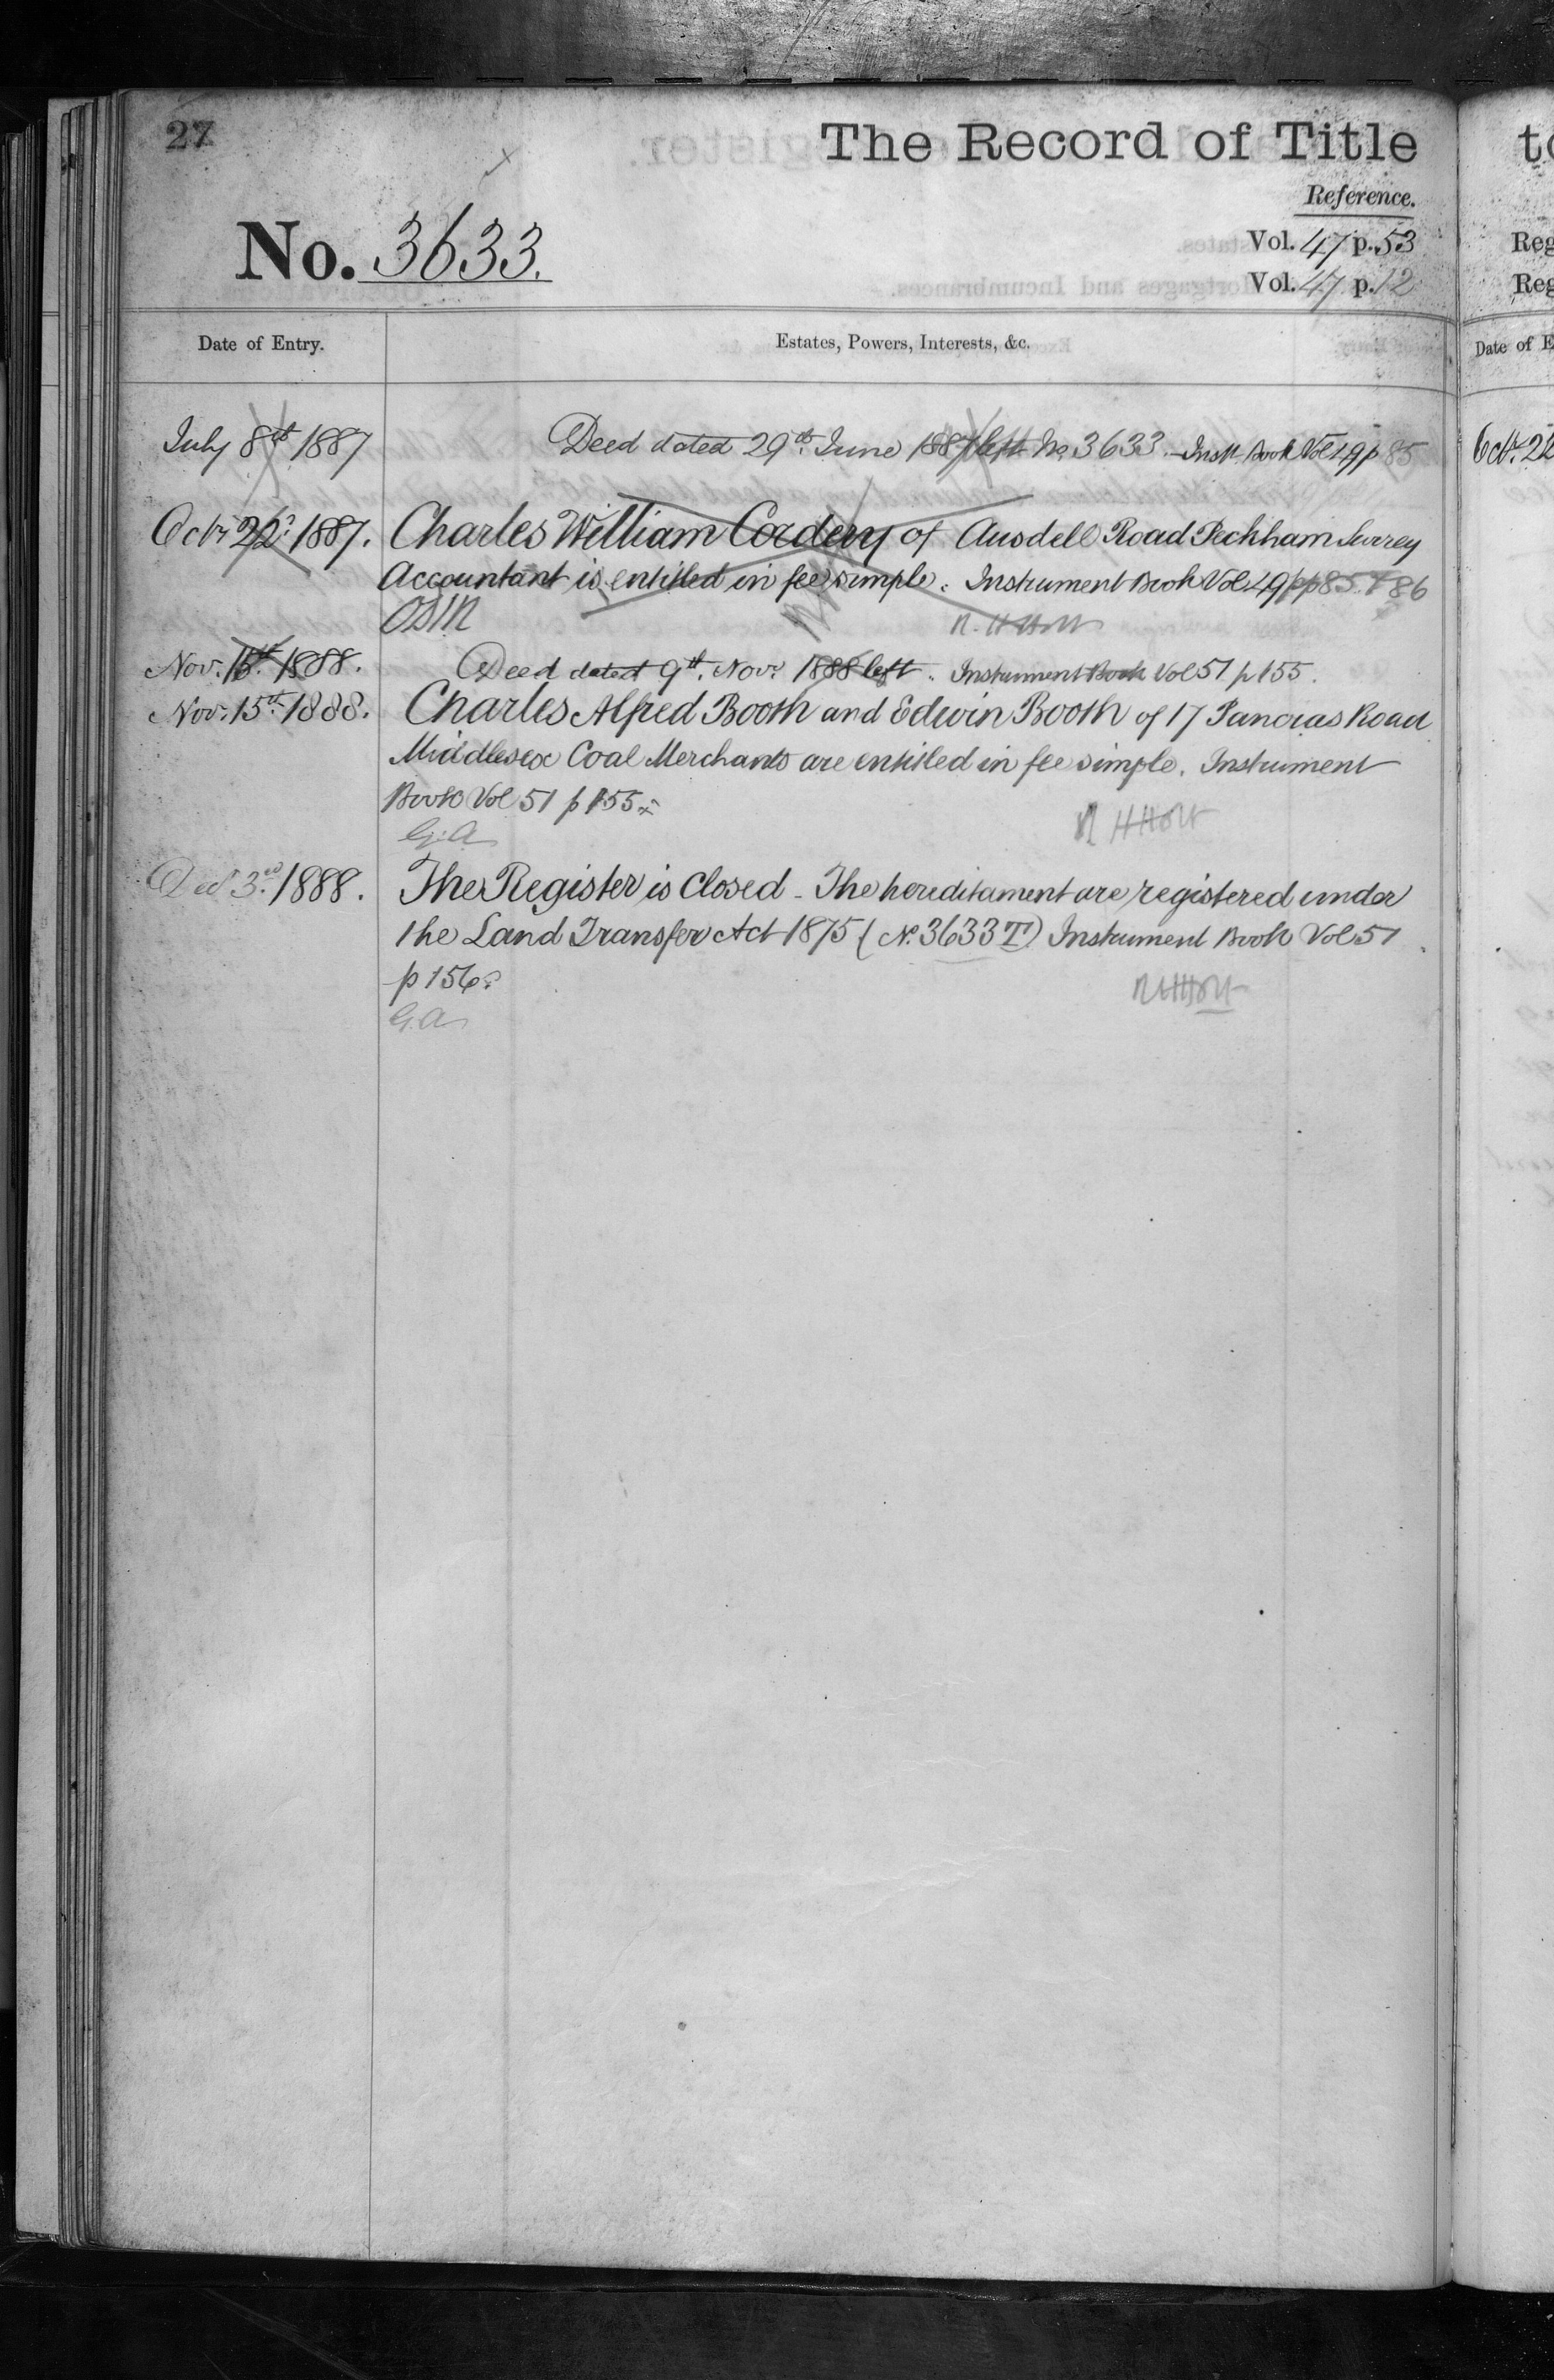 27
The Record of Title
Reference.
No. 3633.
Vol. 47 p. 53
Vol. 47 p. 12
Date of Entry.
Estates, Powers, Interests, &c.
July 8th 1887
Deed dated 29th June 1887 left No 3633. Inst Book Vol 49 p 85
Octr 22d 1887.
Charles William Cordeny of Ausdell Road Peckham Surrey
Accountant is entitled in fee simple. Instrument Book Vol 49 pp 85 & 86
Nov. 15th 1888.
Deed dated 9th Novr 1888 left. Instrument Book Vol 51 p 155.
Nov. 15th 1888.
Charles Alfred Booth and Edwin Booth of 17 Pancras Road
Middlesex Coal Merchants are entitled in fee simple. Instrument
Book Vol 51 p 155.
G.A
R H Holt
Decr 3rd 1888.
The Register is Closed - The hereditament are registered under
the Land Transfer Act 1875 (No. 3633 T) Instrument Book Vol 51
p 156.
G.A
R H Holt
Reg
Reg
Date of E
Octr. 22